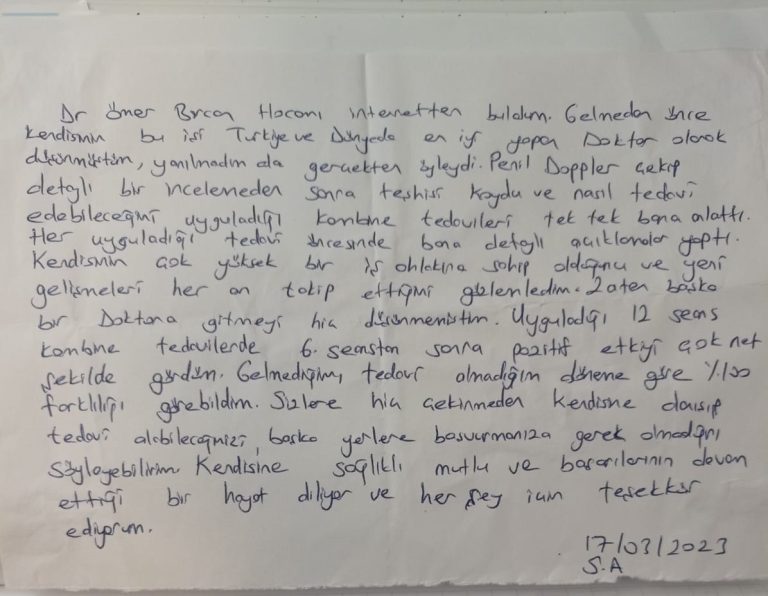 Dr Ömer Burcan Hocamı internetten buldum. Gelmeden önce
kendisinin bu işi Türkiye ve Dünyada en iyi yapan Doktor olarak
düşünmüştüm, yanılmadım da gerçekten öyleydi. Penil Doppler çekip
detaylı bir incelemeden sonra teşhisi koydu ve nasıl tedavi
edebileceğini uyguladığı kombine tedavileri tek tek bana alattı.
Her uyguladığı tedavi öncesinde bana detaylı açıklamalar yaptı.
Kendisinin çok yüksek bir iş ahlakına sahip olduğunu ve yeni
gelişmeleri her an takip ettiğini gözlemledim. Zaten başka
bir Doktora gitmeyi hiç düşünmemiştim. Uyguladığı 12 seans
kombine tedavilerde 6. seanstan sonra pozitif etkiyi çok net
şekilde gördüm. Gelmediğim, tedavi olmadığım döneme göre %100
farklılığı görebildim. Sizlere hiç çekinmeden kendisne danışıp
tedavi alabileceğinizi, başka yerlere başvurmanıza gerek olmadığını
söyleyebilirim. Kendisine sağlıklı mutlu ve başarılarının devam
ettiği bir hayat diliyor ve her şey için teşekkür
ediyorum.
17/03/2023
S.A